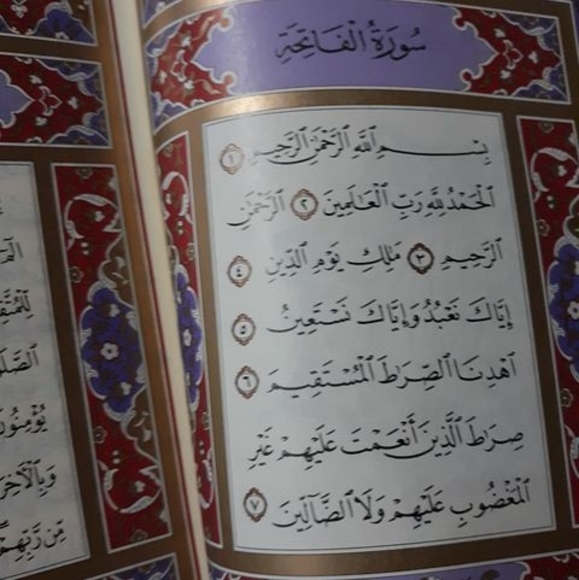 سُورَةُ الْفَاتِحَةِ
بِسْمِ اللَّهِ الرَّحْمَٰنِ الرَّحِيمِ ١
الْحَمْدُ لِلَّهِ رَبِّ الْعَالَمِينَ ٢ الرَّحْمَٰنِ
الرَّحِيمِ ٣ مَالِكِ يَوْمِ الدِّينِ ٤
إِيَّاكَ نَعْبُدُ وَإِيَّاكَ نَسْتَعِينُ ٥
اهْدِنَا الصِّرَاطَ الْمُسْتَقِيمَ ٦
صِرَاطَ الَّذِينَ أَنْعَمْتَ عَلَيْهِمْ غَيْرِ
الْمَغْضُوبِ عَلَيْهِمْ وَلَا الضَّالِّينَ ٧